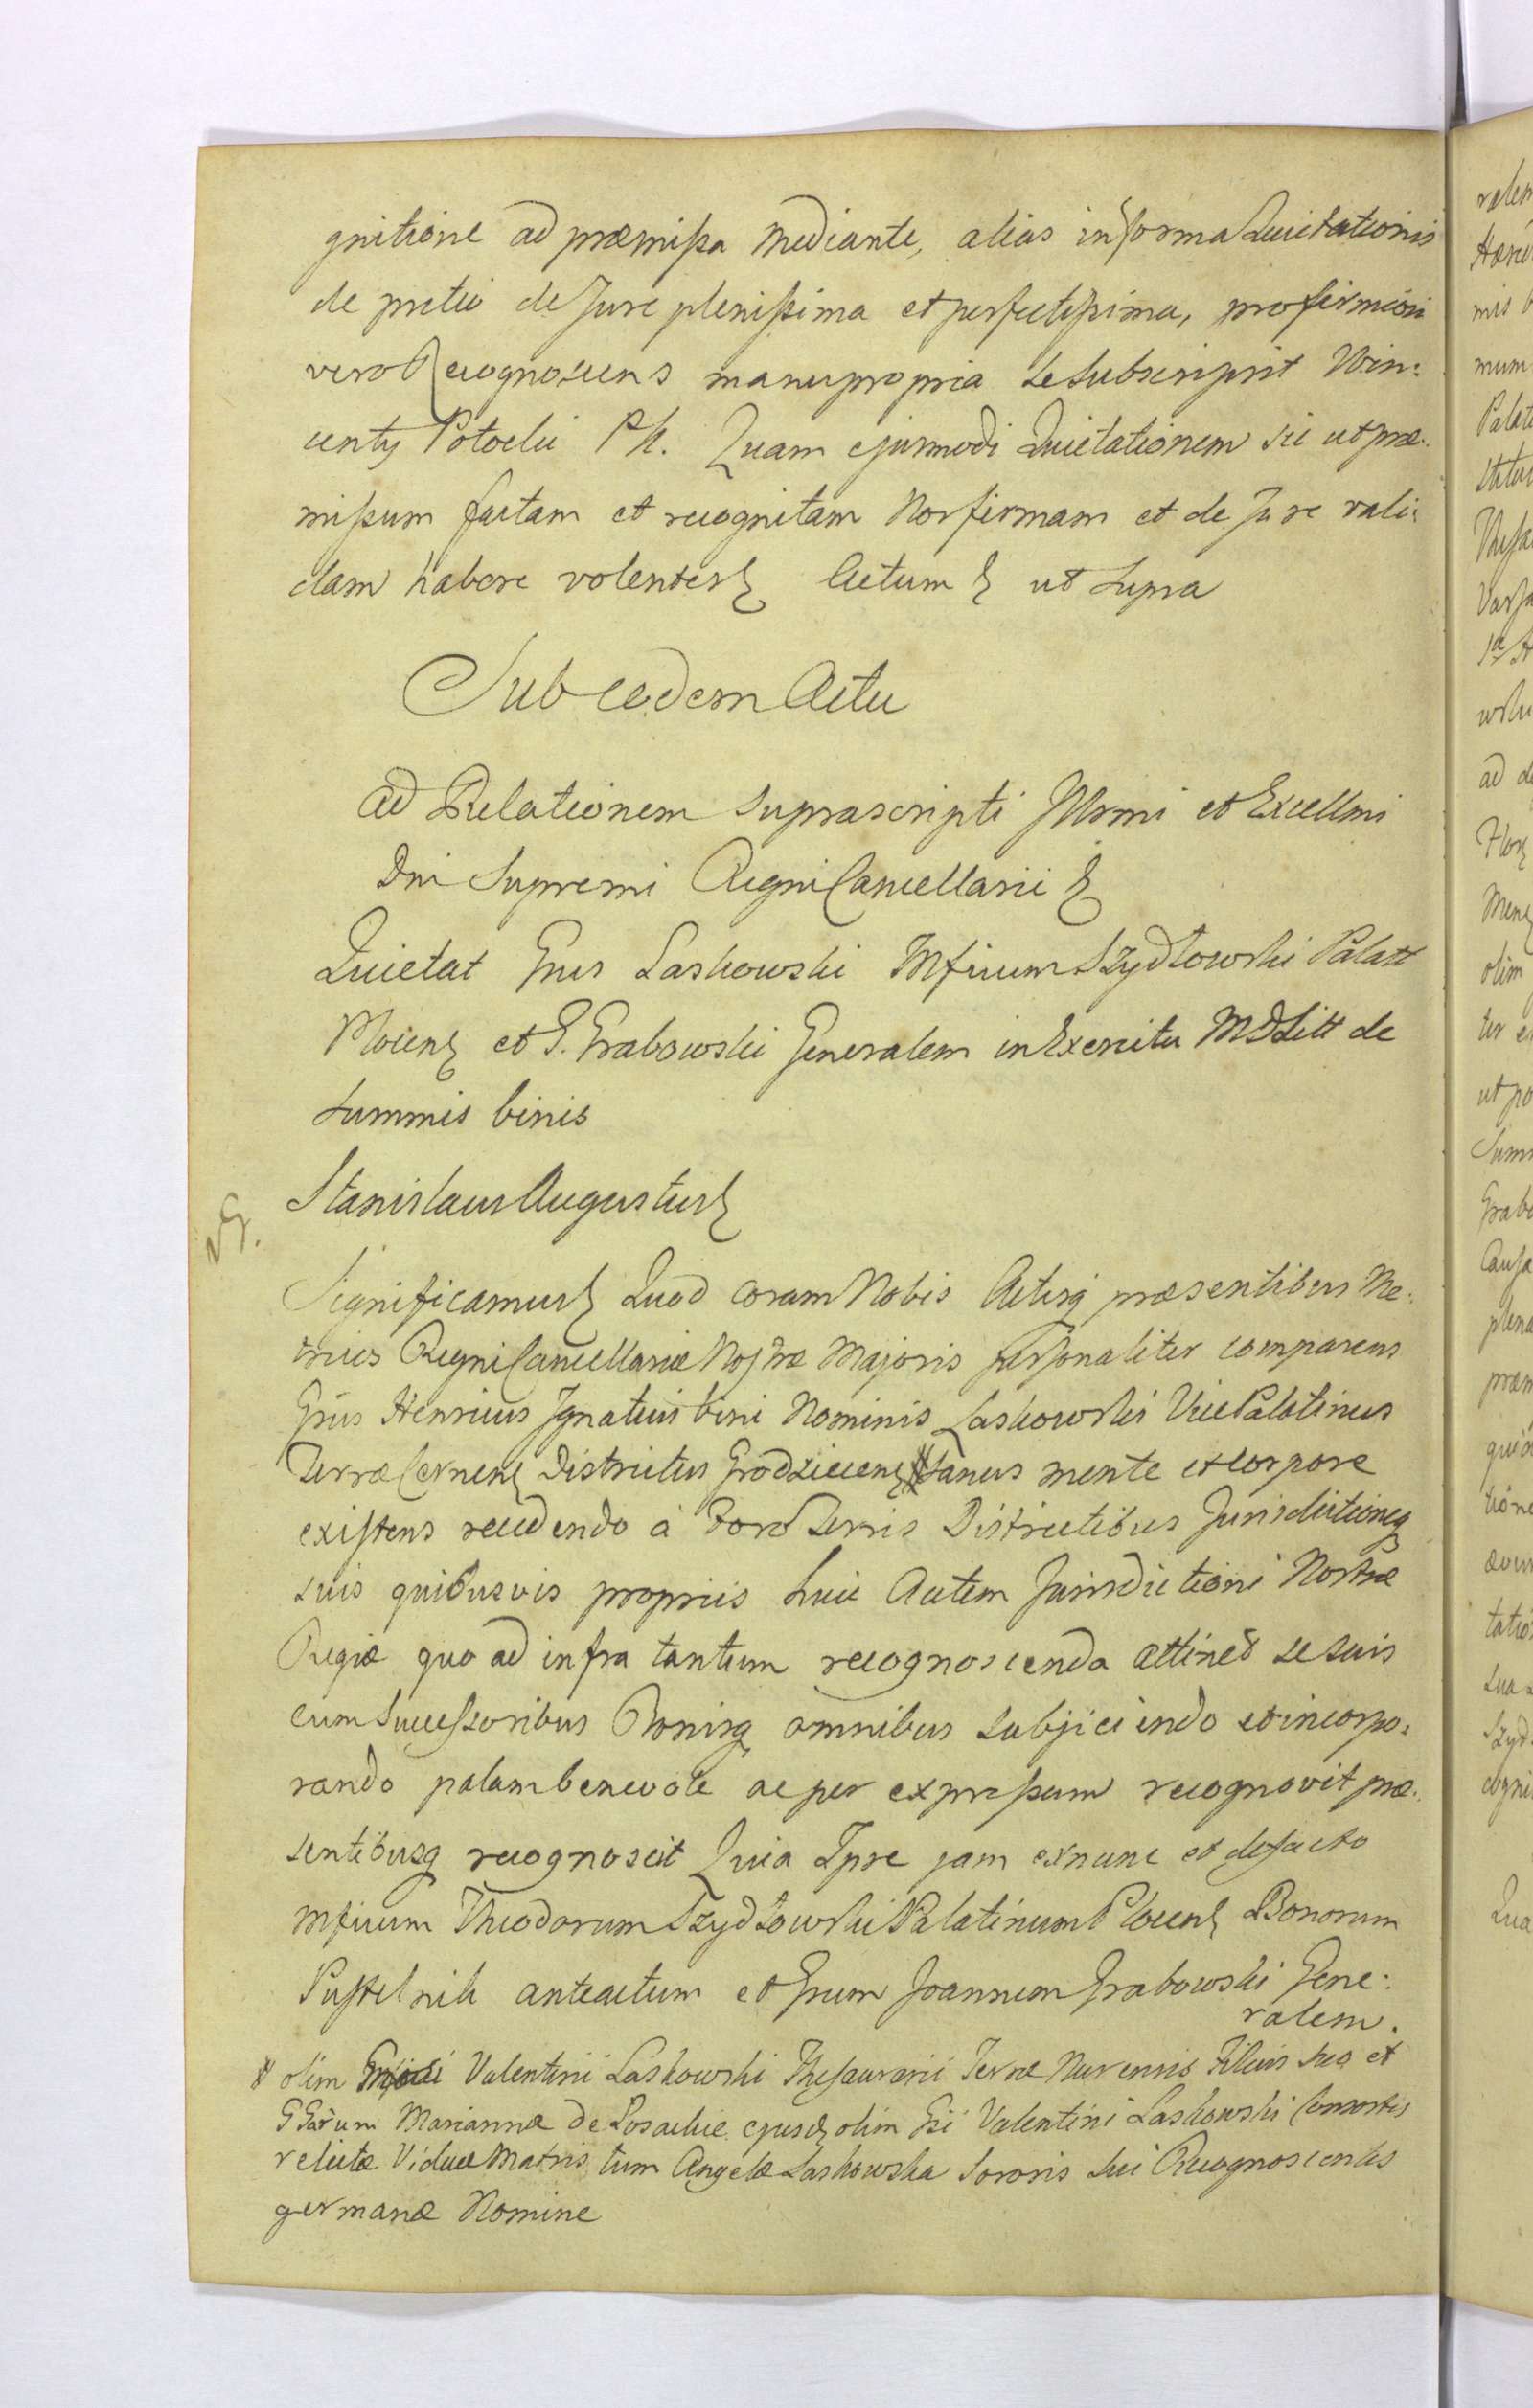 gnitione ad præmißa mediante, alias in forma Quietationis
de pretio de Jure plenißima et perfectißima, pro firmiori
vero Recognoscens manu propria se subscripsit Win:
centy Potocki Pk. Quam ejusmodi Quietationem sic ut præ:
mißum factam et recognitam Nos firmam et de Jure vali:
dam habere volentes Actum ut supra
Sub eodem Actu
Ad Relationem suprascripti Illrmi et Excellmi
Dni Supremi Regni Cancellarii
Quietat Gnus Laskowski Mficum Szydłowski Palatt
Plocens et G. Grabowski Generalem in Exercitu MDLitt de
summis binis
Stanislaus Augustus
Significamus Quod coram Nobis Actisq præsentibus Me:
trices Regni Cancellariæ Nostræ Majoris personaliter comparens
Gnus Henricus Ignatius bini Nominis Laskowski Vice Palatinus
Terræ Cernens Districtus Grodziecens sanus mente et corpore
existens recedendo à Foro Terris Districtibus Jurisdictioneq
suis quibusvis propriis huic Autem Jurisdictioni Nostræ
Regiæ quo ad infra tantum recognoscenda attinet se suis
cum Succeßoribus Bonisq omnibus subjiciendo et incorpo:
rando palam benevole ac per expreßum recognovit præ:
sentibusq recognoscit Quia Ipse jam ex nunc et de facto
mficum Theodorum Szydłowski Palatinum Plocens Bonorum
Pustelnik anteactum et Gnum Joannem Grabowski Gene:
ralem.
olim Valentini Laskowski Thesaurarii Terræ Nurensis Filius suo et
GGarum Mariannæ de Kosackie ejusd olim Gsi Valentini Laskowski Consortis
relictæ Viduæ Matris tum Angelæ Laskowska Sororis sui Recognoscentis
germanæ Nomine